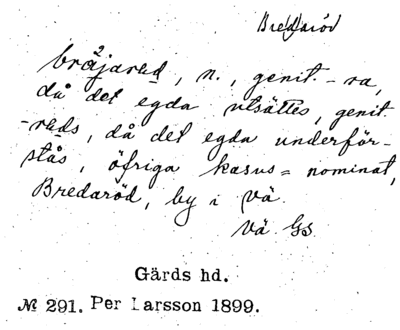 Bredaröd
brä²jarad, n., genit. -ra,
då det egda utsättes, genit.
-rads, då det egda underför-
stås, öfriga kasus = nominat,
Bredaröd, by i Vä.
Vä Gs.
Gärds hd.
№ 291. Per Larsson 1899.